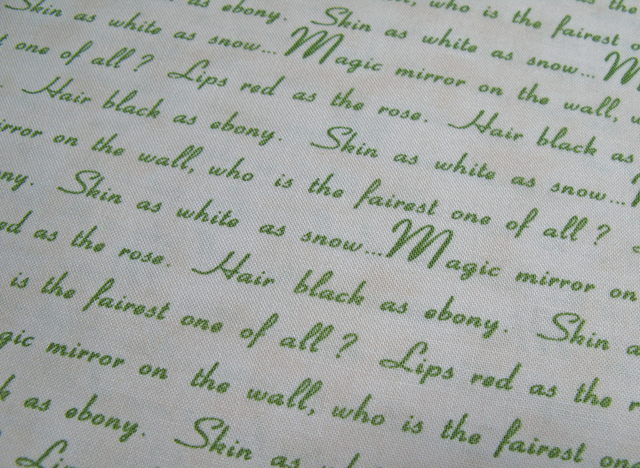 as the
who is the fairest
as ebony. Skin as white as snow... M
Skin as white as snow...Magic mirror on the wall, w
t one of all? Lips red as the rose. Hair black as
. Hair black as ebony. Skin as white as snow...
irror on the wall, who is the fairest one of all?
ny. Skin as white as snow...Magic mirror on
ed as the rose. Hair black as ebony. Skin a
is the fairest one of all? Lips red as the r
gic mirror on the wall, who is the fairest on
k as ebony. Skin as
Lips